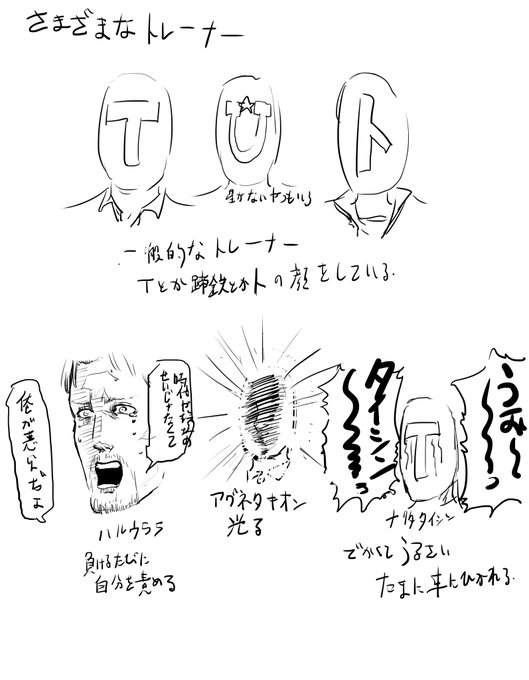 さまざまなトレーナー
T
U
ト
書かないヤツもいる
一般的なトレーナー
Tとか蹄鉄とかトの顔をしている
俺が悪いんだよ
せいじゃなくて
ハルウララ
負けるたびに
自分を責める
アグネタキオン
光る
うみ〜〜〜っ
タイシン
〜〜〜っ
T
ナリタタイシン
でかくてうるさい
たまに車にひかれる